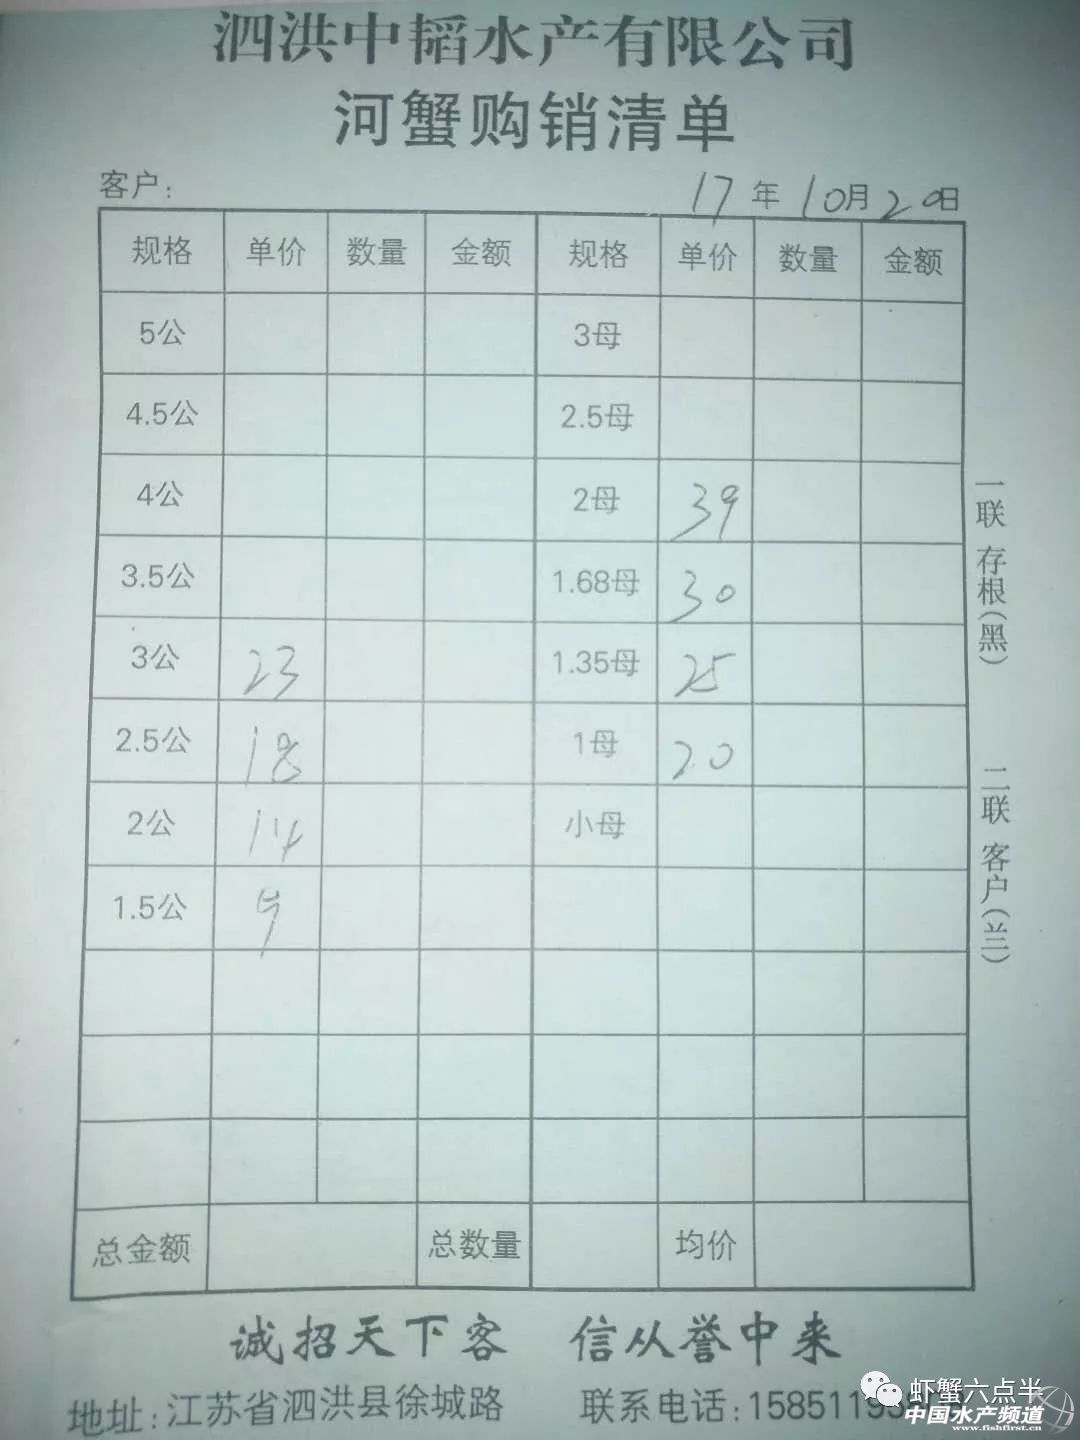 泗洪中韬水产有限公司
河蟹购销清单
客户: 17年10月20日
规格 单价 数量 金额 规格 单价 数量 金额
5公 3母
4.5公 2.5母
4公 2母 39
3.5公 1.68母 30
3公 23 1.35母 25
2.5公 18 1母 20
2公 14 小母
1.5公 9
总金额 总数量 均价
一联 存根(黑)
二联 客户(兰)
诚招天下客 信从誉中来
地址:江苏省泗洪县徐城路 联系电话:158511
虾蟹六点半
中国水产频道
www.fishfirst.cn